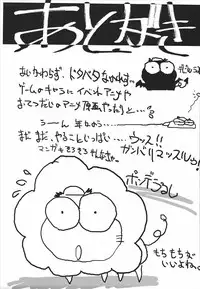 あとがき
あいかわらず、ドタバタなかんで…
ゲームのキャラに イベント アニメや
おてつだいのアニメ原画やったりと…
うーん 年々やら…
まだ まだ、やることいっぱい… ウッス!!
ガンバリマッスルゥ!!
マンガもそろそろ
ポンデらるし
もち もち
いいよね。